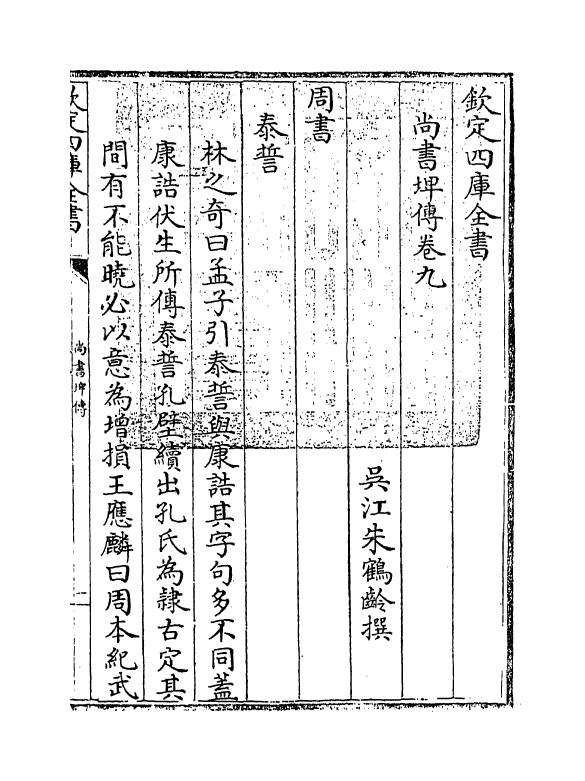 欽定四庫全書
尚書埤傳卷九
吳江朱鶴齡撰
周書
泰誓
林之奇曰孟子引泰誓與康誥其字句多不同蓋
康誥伏生所傳泰誓孔壁續出孔氏為隷古定其
間有不能曉必以意為增損王應麟曰周本紀武
欽定四庫全書
尚書埤傳
一